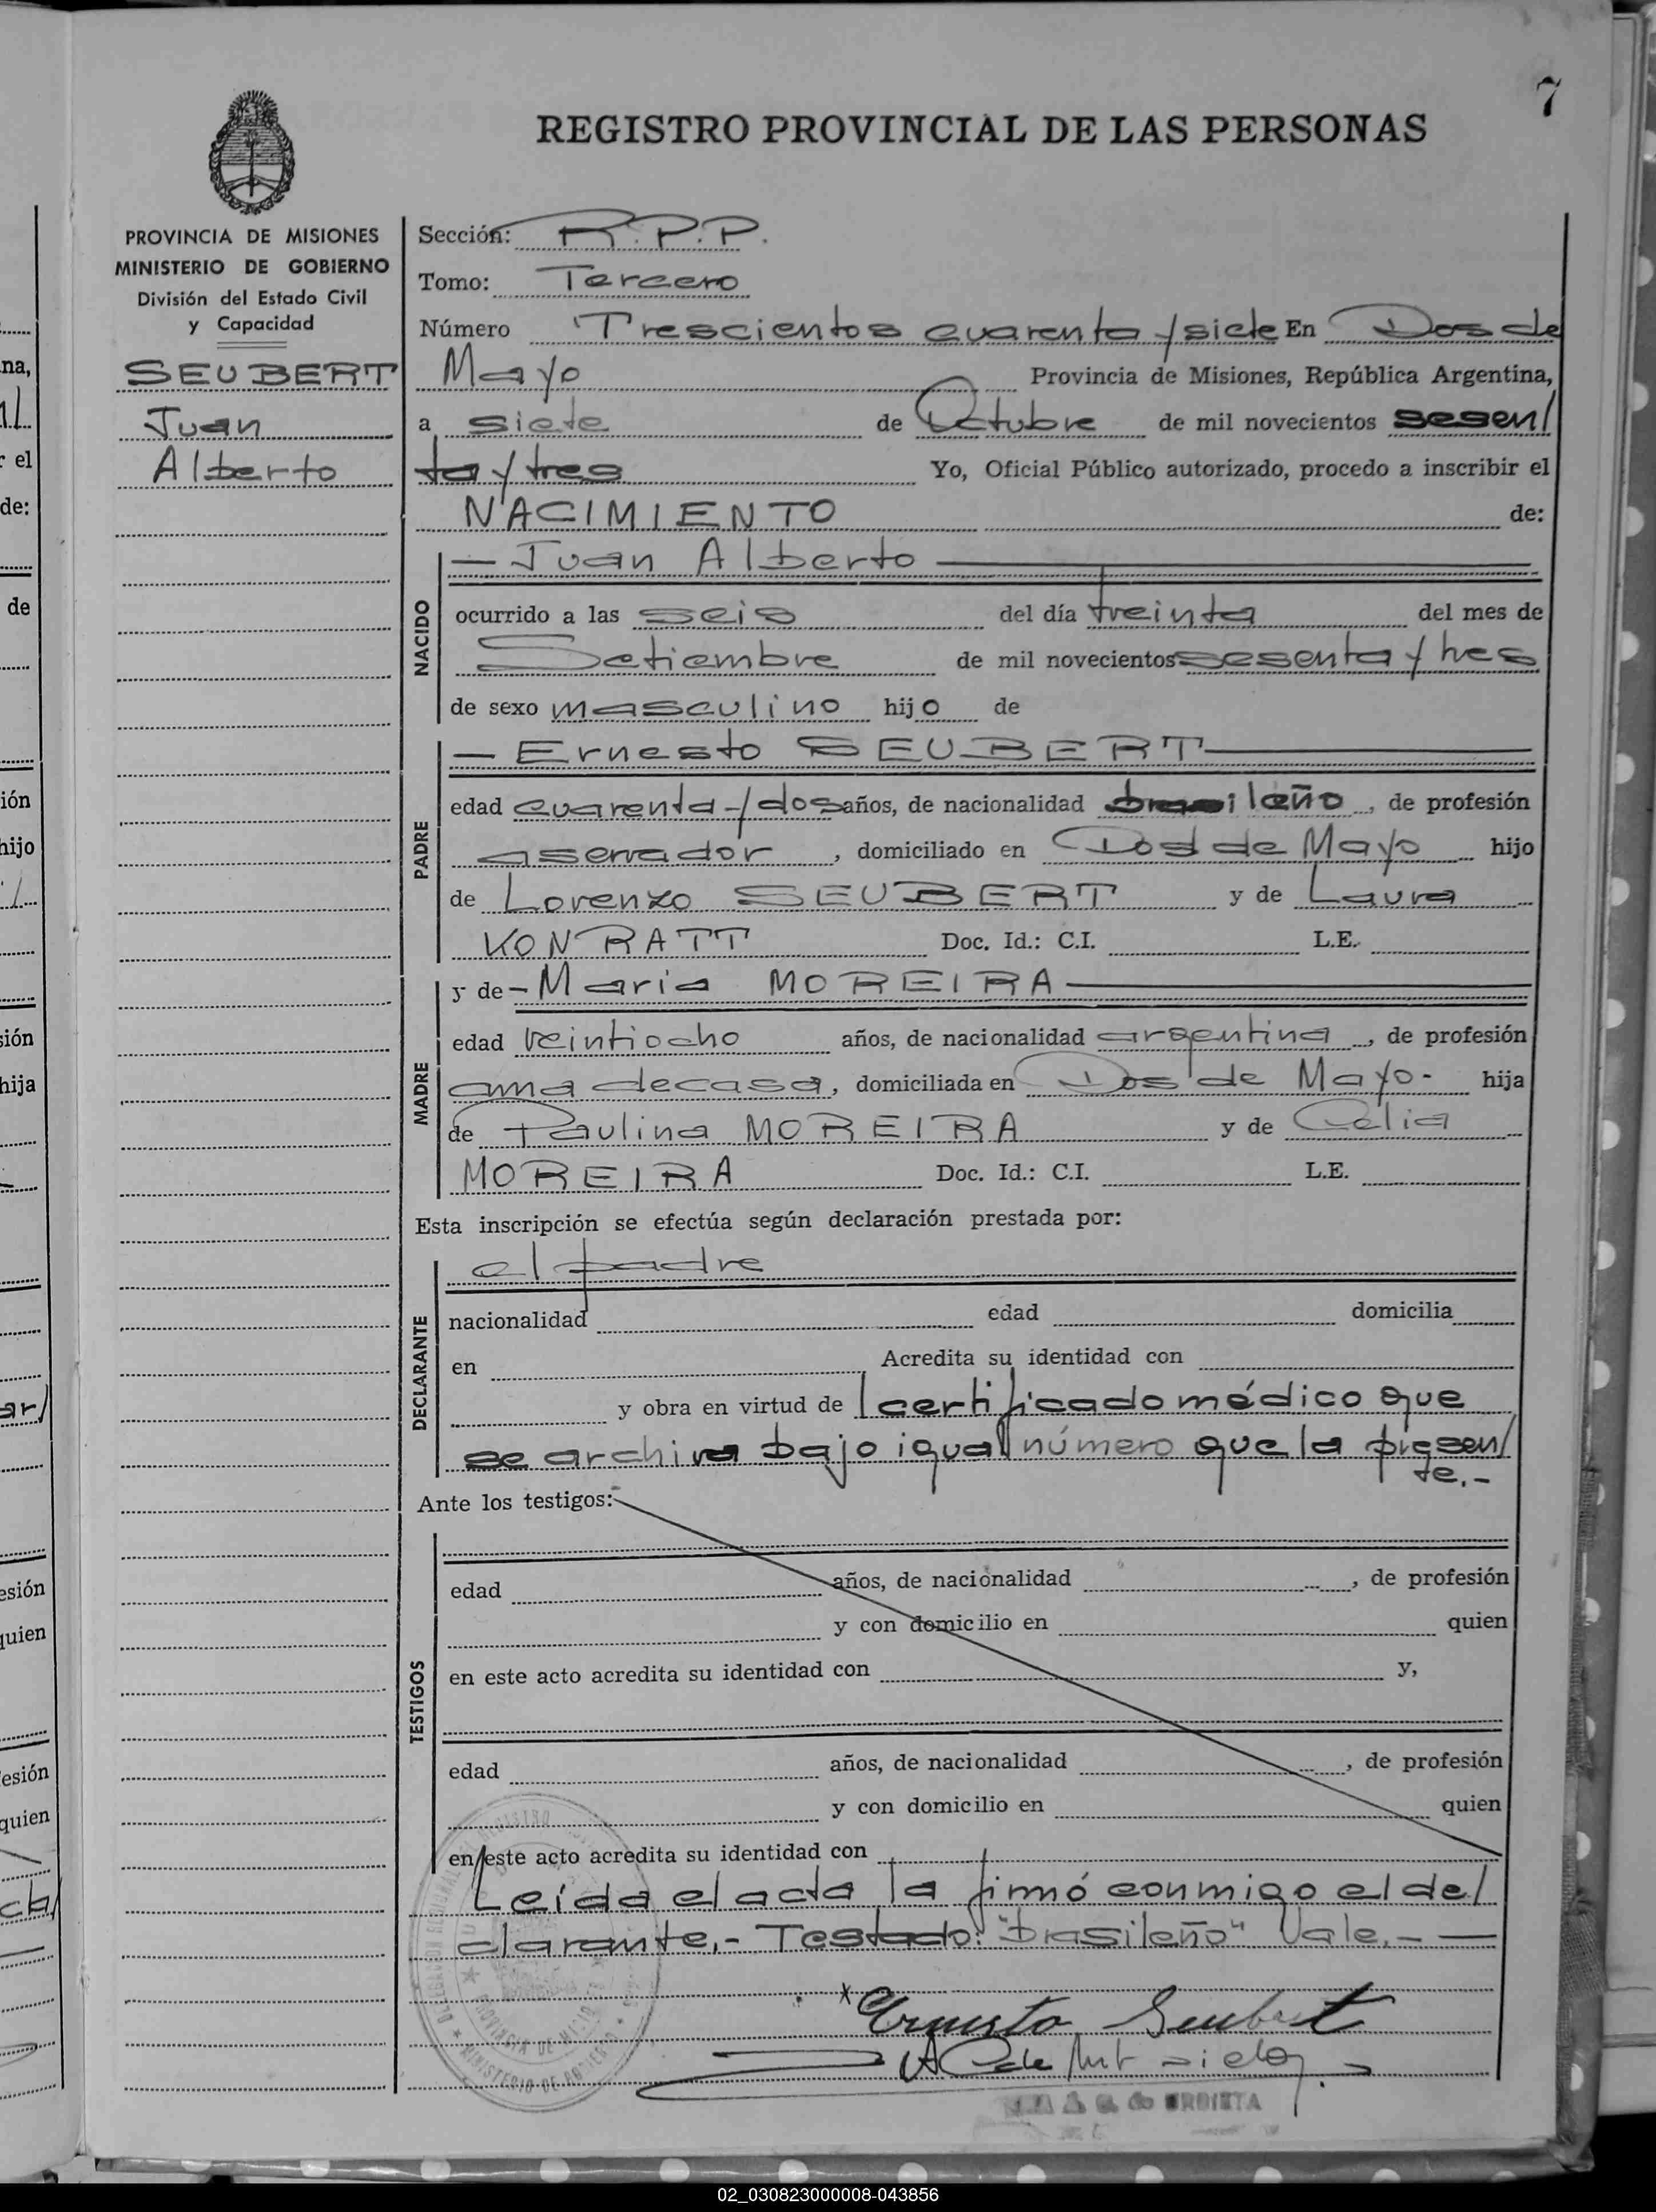 7
REGISTRO PROVINCIAL DE LAS PERSONAS
PROVINCIA DE MISIONES
MINISTERIO DE GOBIERNO
División del Estado Civil
y Capacidad
SEUBERT
Juan
Alberto
Sección: R.P.P.
Tomo: Tercero
Número Trescientos cuarenta y siete En Dos de
Mayo Provincia de Misiones, República Argentina,
a siete de Octubre de mil novecientos sesen/
ta y tres Yo, Oficial Público autorizado, procedo a inscribir el
NACIMIENTO de:
NACIDO
— Juan Alberto —
ocurrido a las seis del día treinta del mes de
Setiembre de mil novecientos sesenta y tres
de sexo masculino hijo de
PADRE
— Ernesto SEUBERT —
edad cuarenta y dos años, de nacionalidad brasileño, de profesión
aserrador, domiciliado en Dos de Mayo hijo
de Lorenzo SEUBERT y de Laura
KONRATT Doc. Id.: C.I. L.E.
MADRE
y de - Maria MOREIRA —
edad veintiocho años, de nacionalidad argentina, de profesión
ama de casa, domiciliada en Dos de Mayo- hija
de Paulina MOREIRA y de Celia
MOREIRA Doc. Id.: C.I. L.E.
Esta inscripción se efectúa según declaración prestada por:
DECLARANTE
el padre
nacionalidad edad domicilia
en Acredita su identidad con
y obra en virtud de l certificado médico que
se archiva bajo igual número que la presen/
te.-
Ante los testigos:
TESTIGOS
edad años, de nacionalidad , de profesión
y con domicilio en quien
en este acto acredita su identidad con y,
edad años, de nacionalidad , de profesión
y con domicilio en quien
en este acto acredita su identidad con
Leída el acta la firmó conmigo el de/
clarante.- Testado: "brasileño" Vale.- —
Ernesto Seubert
PROVINCIA DE MISIONES
MINISTERIO DE GOBIERNO
de URDIETA
02_030823000008-043856